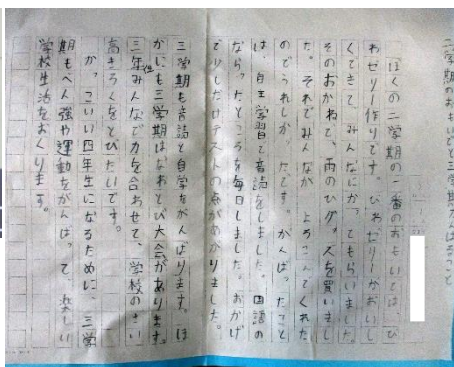 二学期のおもいでと三学期がんばること
ぼくの二学期の一番のおもいでは、び
わゼリー作りです。びわゼリーがおいし
くできて、みんなにかってもらいました。
そのおかねで、雨のひグッズを買いまし
た。それでみんなが、よろこんでくれた
のでうれしかったです。がんばったこと
は、自主学習で音読をしました。国語の
ならったところを毎日しました。おかげ
で少しだけテストの点があがりました。
三学期も音読と自学をがんばります。ほ
かにも三学期はなわとび大会があります。
三年生みんなで力を合わせて、学校のさい
高きろくをとびたいです。
かっこいい四年生になるために、三学
期もべん強や運動をがんばって、楽しい
学校生活をおくります。